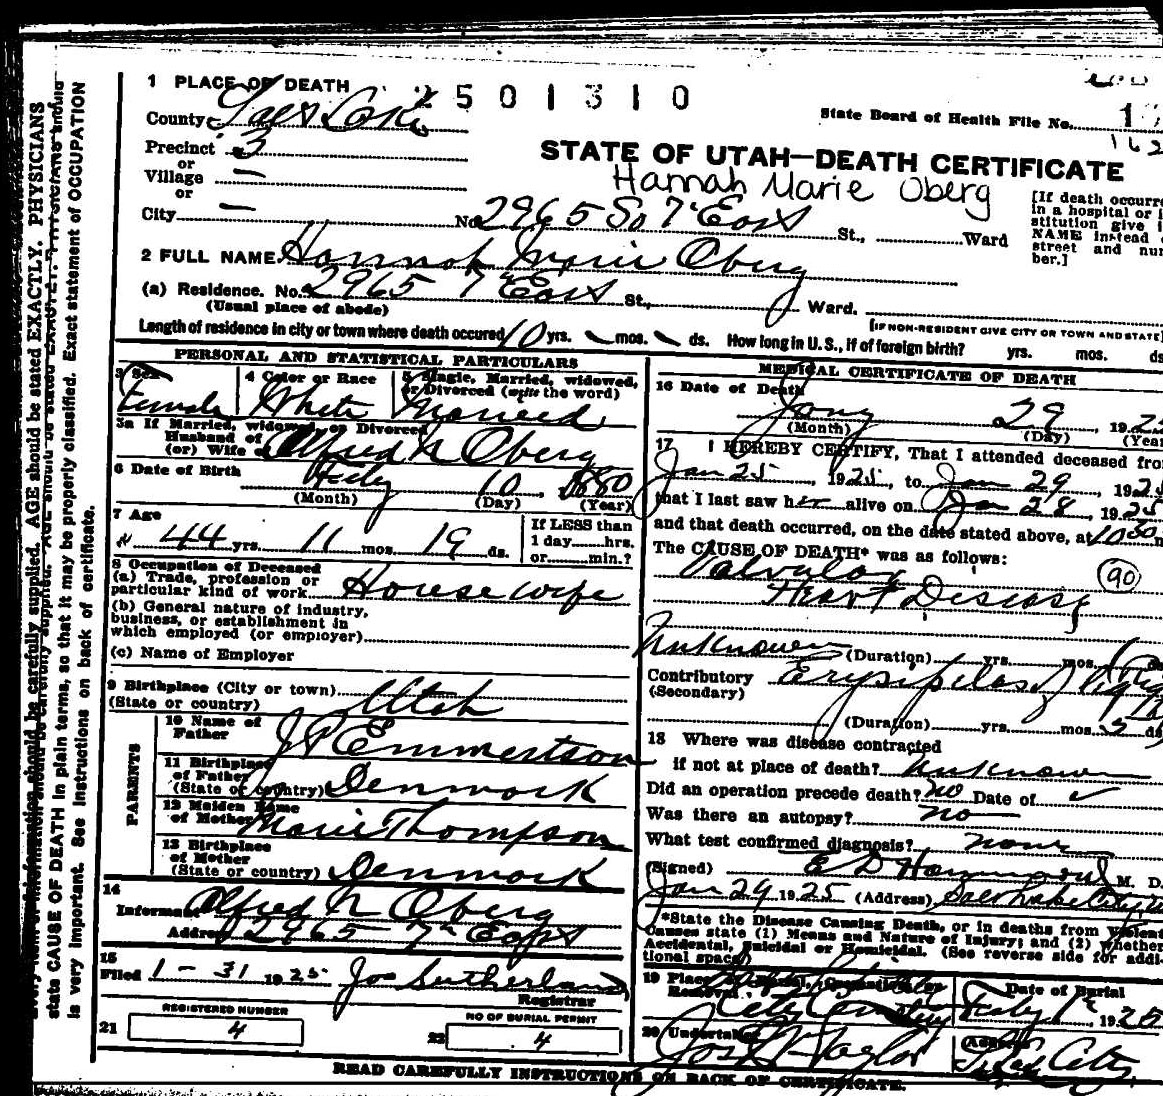 1 PLACE OF DEATH 2501310
County Salt Lake
State Board of Health File No. 1
162
Precinct 3
or
Village —
or
City —
STATE OF UTAH—DEATH CERTIFICATE
Hannah Marie Oberg
No. 2965 So 7" East St., Ward
[If death occurre
in a hospital or i
stitution give i
NAME instead o
street and nu
ber.]
2 FULL NAME Hannah Marie Oberg
(a) Residence. No. 2965 7" East St., Ward.
(Usual place of abode)
[IF NON-RESIDENT GIVE CITY OR TOWN AND STATE]
Length of residence in city or town where death occured 10 yrs. mos. ds. How long in U. S., if of foreign birth? yrs. mos. ds
PERSONAL AND STATISTICAL PARTICULARS
3 Sex 4 Color or Race 5 Single, Married, widowed,
or Divorced (write the word)
Female White Married
3a If Married, widowed, or Divorced
Husband of
(or) Wife of Alfred N Oberg
6 Date of Birth Feby 10, 1880
(Month) (Day) (Year)
7 Age
44 yrs. 11 mos. 19 ds.
If LESS than
1 day hrs.
or min.?
8 Occupation of Deceased
(a) Trade, profession or
particular kind of work Housewife
(b) General nature of industry,
business, or establishment in
which employed (or employer)
(c) Name of Employer
9 Birthplace (City or town)
(State or country) Utah
PARENTS
10 Name of
Father J P Emmertson
11 Birthplace
of Father
(State or country) Denmark
12 Maiden Name
of Mother Marie Thompson
13 Birthplace
of Mother
(State or country) Denmark
14
Informant Alfred N Oberg
Address 2965 7th East
15
Filed 1-31 1925 Jos Sutherland
Registrar
REGISTERED NUMBER
21 4
NO OF BURIAL PERMIT
22 4
MEDICAL CERTIFICATE OF DEATH
16 Date of Death
Jany 29, 192
(Month) (Day) (Year
17 I HEREBY CERTIFY, That I attended deceased fro
Jan 25, 1925, to Jan 29, 192
that I last saw her alive on Jan 28, 1925
and that death occurred, on the date stated above, at 10 50
The CAUSE OF DEATH* was as follows:
Valvular
Heart Disease
90
Unknown (Duration) yrs. mos.
Contributory Erysipelas of
(Secondary)
(Duration) yrs. mos. 5 ds
18 Where was disease contracted
if not at place of death? unknown
Did an operation precede death? no Date of
Was there an autopsy? no
What test confirmed diagnosis? none
(Signed) E D Hammond M. D.
Jan 29 1925 (Address) Salt Lake City, U
*State the Disease Causing Death, or in deaths from Violent
Causes state (1) Means and Nature of Injury; and (2) whether
Accidental, Suicidal or Homicidal. (See reverse side for addi-
tional space)
19 Place of Burial, Cremation or
Removal City Cemetery
Date of Burial
Feby 1st, 1925
20 Undertaker
Jos Taylor
(Address)
City
READ CAREFULLY INSTRUCTIONS ON BACK OF CERTIFICATE.
should be carefully supplied. AGE should be stated EXACTLY. PHYSICIANS
state CAUSE OF DEATH in plain terms, so that it may be properly classified. Exact statement of OCCUPATION
is very important. See instructions on back of certificate.